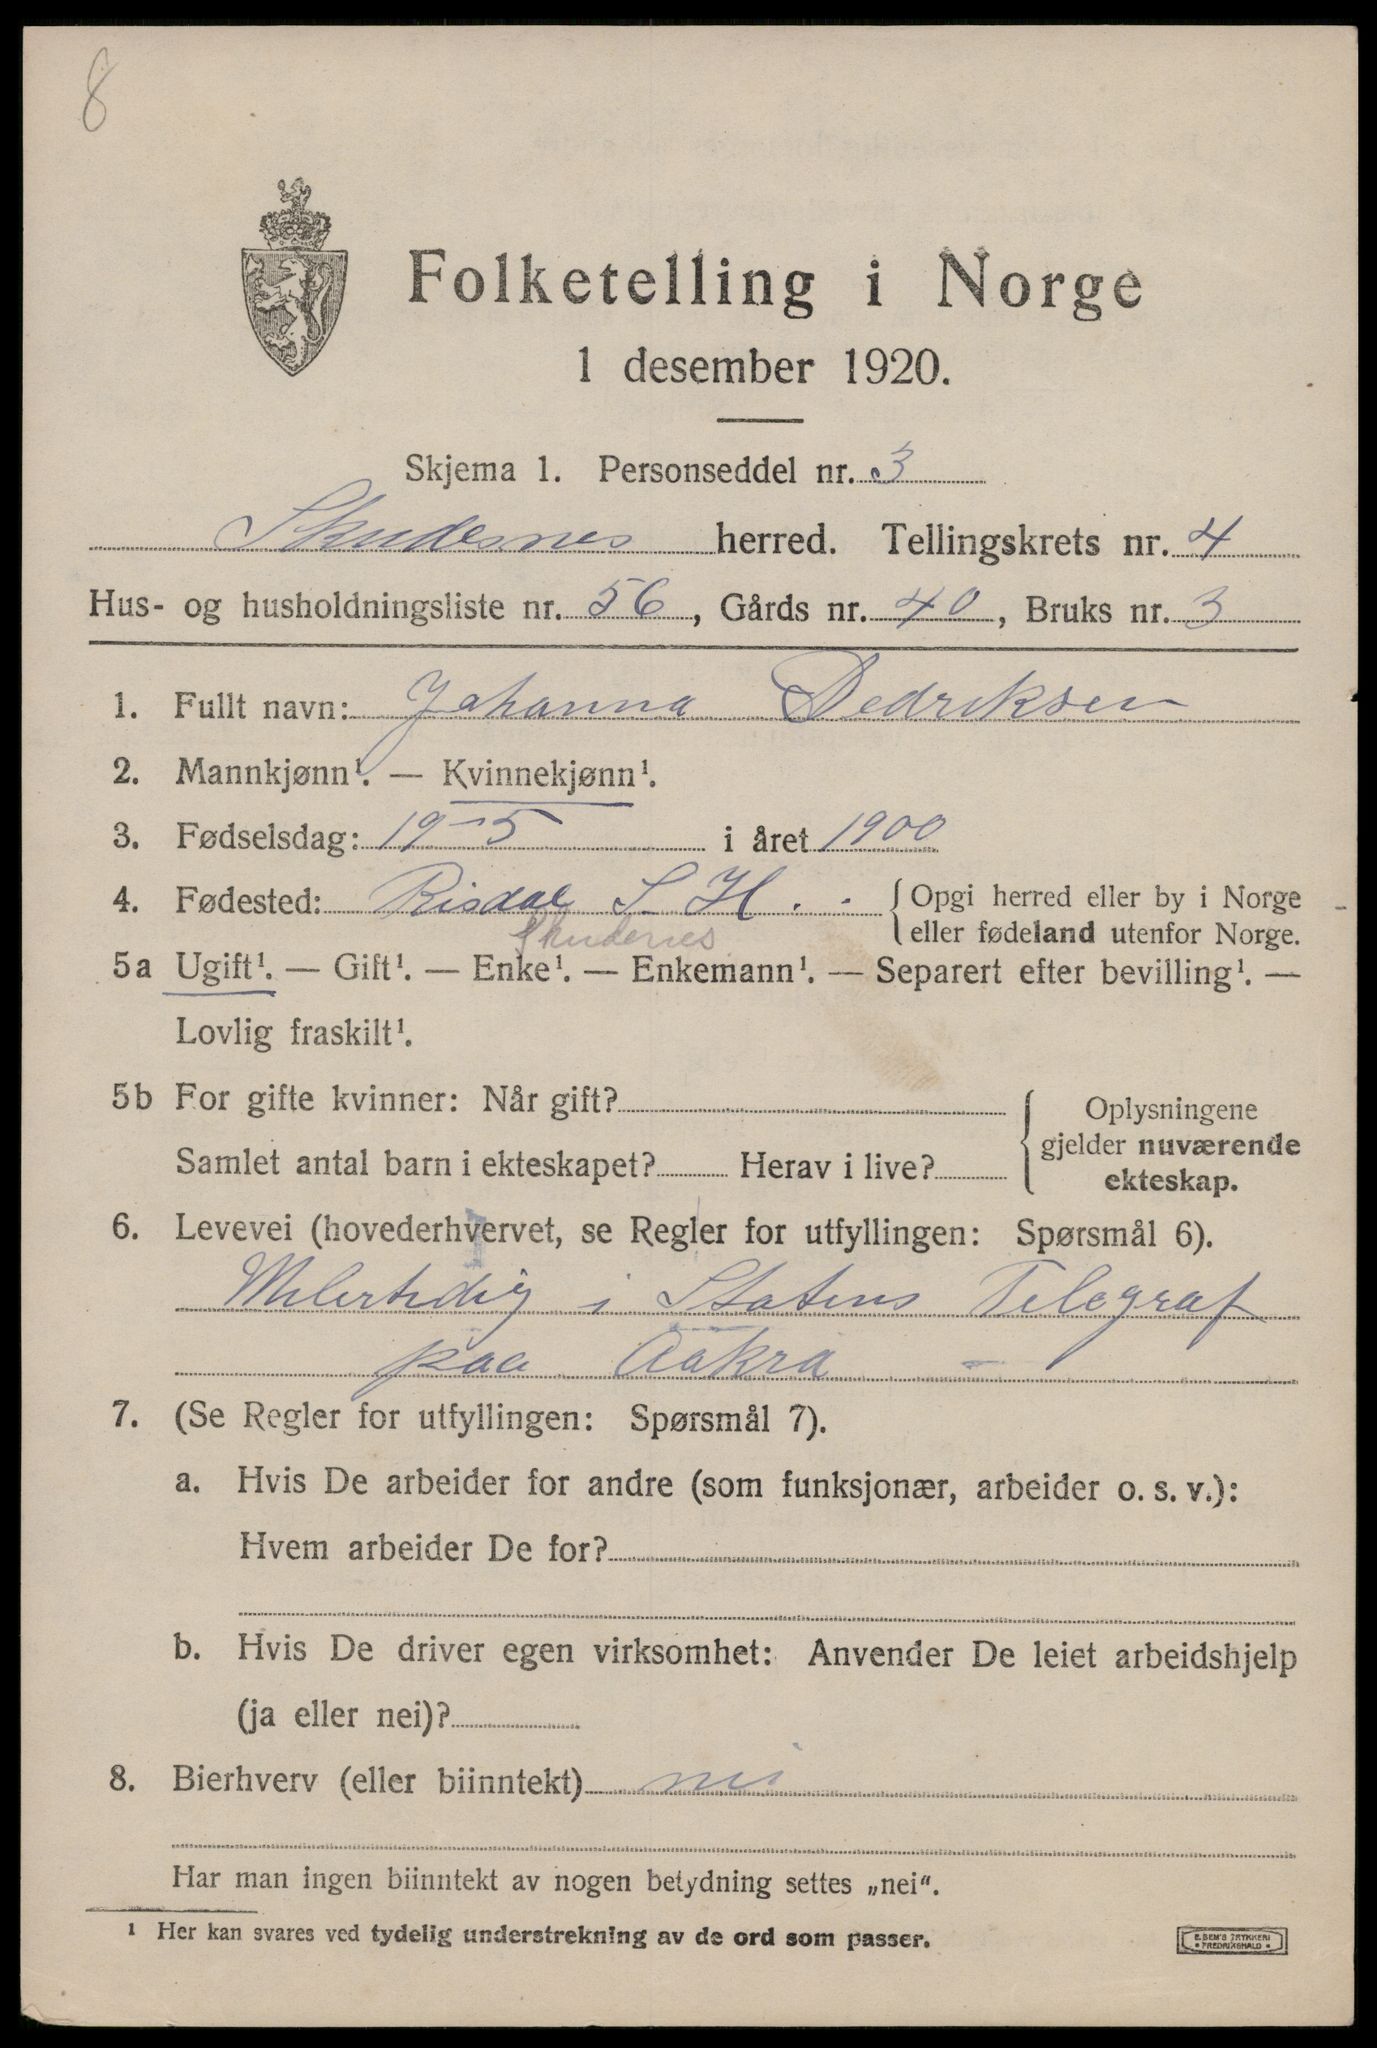 8
Folketelling i Norge
1 desember 1920.
Skjema 1. Personseddel nr. 3
Skudesnes herred. Tellingskrets nr. 4
Hus- og husholdningsliste nr. 56, Gårds nr. 40, Bruks nr. 3
1. Fullt navn: Johanna Dedriksen
2. Mannkjønn¹. — Kvinnekjønn¹.
3. Fødselsdag: 19-5 i året 1900
4. Fødested: Risdal S. H. . . { Opgi herred eller by i Norge
eller fødeland utenfor Norge.
Skudenes
5a Ugift¹. — Gift¹. — Enke¹. — Enkemann¹. — Separert efter bevilling¹. —
Lovlig fraskilt¹.
5b For gifte kvinner: Når gift?
Samlet antal barn i ekteskapet? Herav i live?
Oplysningene
gjelder nuværende
ekteskap.
6. Levevei (hovederhvervet, se Regler for utfyllingen: Spørsmål 6).
i Statens Telegraf
paa Aakra
7. (Se Regler for utfyllingen: Spørsmål 7).
a. Hvis De arbeider for andre (som funksjonær, arbeider o. s. v.):
Hvem arbeider De for?
b. Hvis De driver egen virksomhet: Anvender De leiet arbeidshjelp
(ja eller nei)?
8. Bierhverv (eller biinntekt) nei
Har man ingen biinntekt av nogen betydning settes „nei".
¹ Her kan svares ved tydelig understrekning av de ord som passer.
E. SEM'S TRYKKERI
FREDRIKSHALD